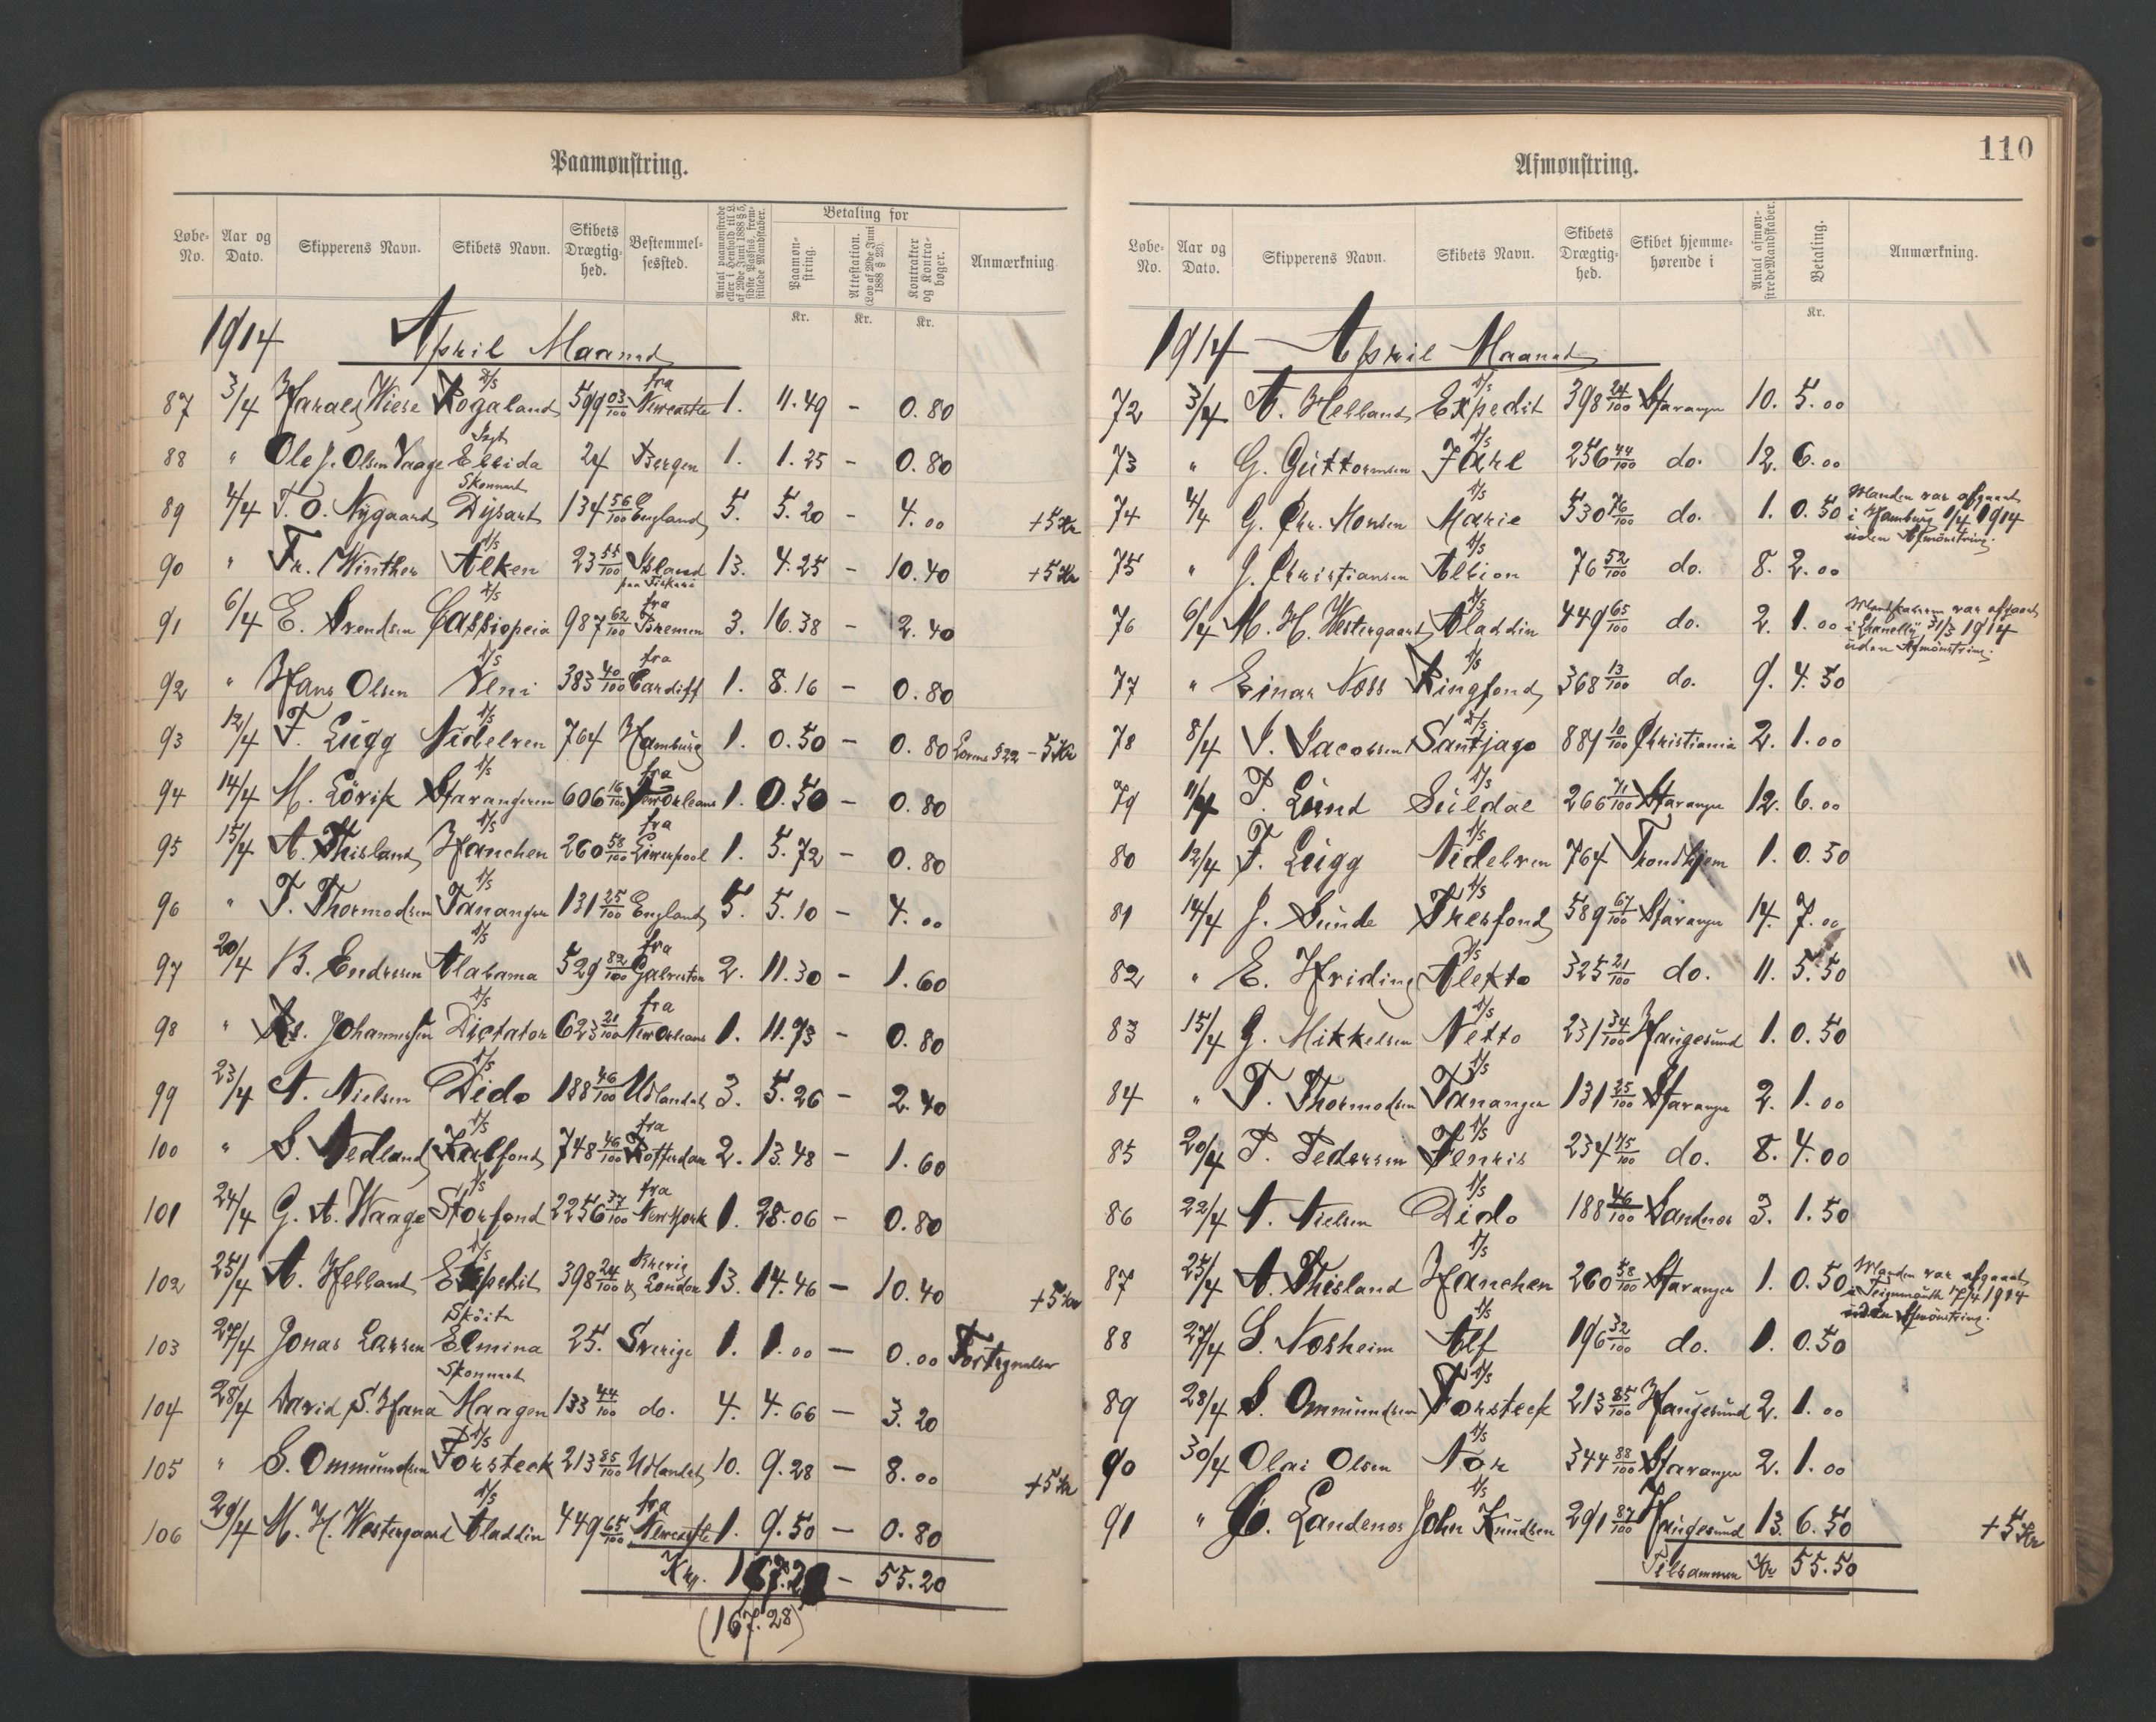 Paamønstring.
Løbe-No. Aar og Dato. Skipperens Navn. Skibets Navn. Skibets Drægtig-hed. Bestemmel-sessted. Antal paamønstrede eller i Henhold til L. af 29de Juni 1888 § 5, sidste Passus, frem-stillede Mandskaber. Betaling for Paamøn-string. Attestation. (Lov af 29de Juni 1888 § 23). Kontrakter og Kontra-bøger. Anmærkning
Kr. Kr. Kr.
1914 April Maaned
87 3/4 Harald Wiese D/S Rogaland 599 03/100 fra Newcastle 1. 11.49 - 0.80
88 " Ole J. Olsen Vaage Jagt Ellida 24 Bergen 1. 1.25 - 0.80
89 4/4 T. O. Nygaard Skonnert Dysart 134 56/100 England 5. 5.20 - 4.00 +5Kr
90 " Fr. Winther D/S Alken 23 55/100 Island paa Fiskeri 13. 4.25 - 10.40 +5Kr
91 6/4 E. Svendsen D/S Cassiopeia 987 62/100 fra Bremen 3. 16.38 - 2.40
92 " Hans Olsen D/S Veni 383 40/100 fra Cardiff 1. 8.16 - 0.80
93 12/4 F. Lugg D/S Nidelven 764 Hamburg 1. 0.50 - 0.80 § 22 - 5Kr
94 14/4 M. Lövik D/S Stavangeren 606 16/100 fra New Orleans 1. 0.50 - 0.80
95 15/4 A. Thisland D/S Hanchen 260 58/100 fra Liverpool 1. 5.72 - 0.80
96 " T. Thormodsen D/S Tananger 131 25/100 England 5. 5.10 - 4.00
97 20/4 B. Endresen D/S Alabama 529 82/100 fra Galveston 2. 11.30 - 1.60
98 " Johannessen D/S Dictator 623 21/100 fra New Orleans 1. 11.73 - 0.80
99 23/4 N. Nielsen D/S Dido 188 46/100 Udlandet 3. 5.26 - 2.40
100 " S. Nedland D/S Kalfond 748 46/100 fra Rotterdam 2. 13.48 - 1.60
101 24/4 G. A. Waage D/S Storfond 2256 37/100 fra New York 1. 28.06 - 0.80
102 25/4 A. Helland D/S Expedit 398 24/100 Sverig & London 13. 14.46 - 10.40 +5Kr
103 27/4 Jonas Larsen Sköite Elmina 25. Sverige 1. 1.00 - 0.00 Fortegnelse
104 28/4 David S. Hana Skonnert Haagen 133 44/100 do. 4. 4.66 - 3.20
105 " S. Ommundsen D/S Torsteck 213 85/100 Udlandet 10. 9.28 - 8.00 +5Kr
106 29/4 M. H. Westergaard D/S Aladdin 449 65/100 fra Newcastle 1. 9.50 - 0.80
Kr. 167.28 - 55.20
(167.28)
110
Afmønstring.
Løbe-No. Aar og Dato. Skipperens Navn. Skibets Navn. Skibets Drægtig-hed. Skibet hjemme-hørende i Antal afmøn-strede Mandskaber. Betaling. Anmærkning.
Kr.
1914 April Maaned
72 3/4 A. Helland D/S Expedit 398 24/100 Stavanger 10. 5.00
73 " G. Guttormsen D/S Jarl 256 44/100 do. 12. 6.00
74 4/4 G. Chr. Monsen D/S Marie 530 76/100 do. 1. 0.50 Manden var afgaaet i Hamburg 1/4 1914 uden Afmönstring.
75 " J. Christiansen D/S Albion 76 52/100 do. 8. 2.00
76 6/4 M. H. Westergaard D/S Aladdin 449 65/100 do. 2. 1.00 Mandskaberne var afgaaet i Llanelly 31/3 1914 uden Afmönstring.
77 " Einar Noss D/S Ringfond 368 13/100 do. 9. 4.50
78 8/4 J. Jacobsen D/S Santjago 881 10/100 Christiania 2. 1.00
79 11/4 T. Lund D/S Suldal 266 71/100 Stavanger 12. 6.00
80 12/4 F. Lugg D/S Nidelven 764 Trondhjem 1. 0.50
81 14/4 J. Sunde D/S Thesfond 589 67/100 Stavanger 14. 7.00
82 " E. Hviding D/S Alekto 325 21/100 do. 11. 5.50
83 15/4 G. Mikkelsen D/S Netto 231 34/100 Haugesund 1. 0.50
84 " T. Thormodsen D/S Tananger 131 25/100 Stavanger 2. 1.00
85 20/4 P. Pedersen D/S Fenris 234 75/100 do. 8. 4.00
86 22/4 N. Nielsen D/S Dido 188 46/100 Sandnes 3. 1.50
87 25/4 A. Thisland D/S Hanchen 260 58/100 Stavanger 1. 0.50 Manden var afgaaet i Teignmouth 17/4 1914 uden Afmönstring.
88 27/4 S. Nosheim D/S Alf 196 32/100 do. 1. 0.50
89 28/4 S. Ommundsen D/S Torsteck 213 85/100 Haugesund 2. 1.00
90 30/4 Olai Olsen D/S Nor 344 88/100 Stavanger 2. 1.00
91 " Landenos D/S John Knudsen 291 87/100 Haugesund 13. 6.50 +5Kr
Tilsammen Kr 55.50